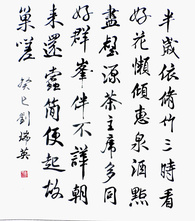 半歲依修竹三時看
好花懶傾惠泉酒點
盡壑源茶主席多同
好群峯伴不譁朝
來還蠹簡便起故
巢嗟 癸巳劉瑞英